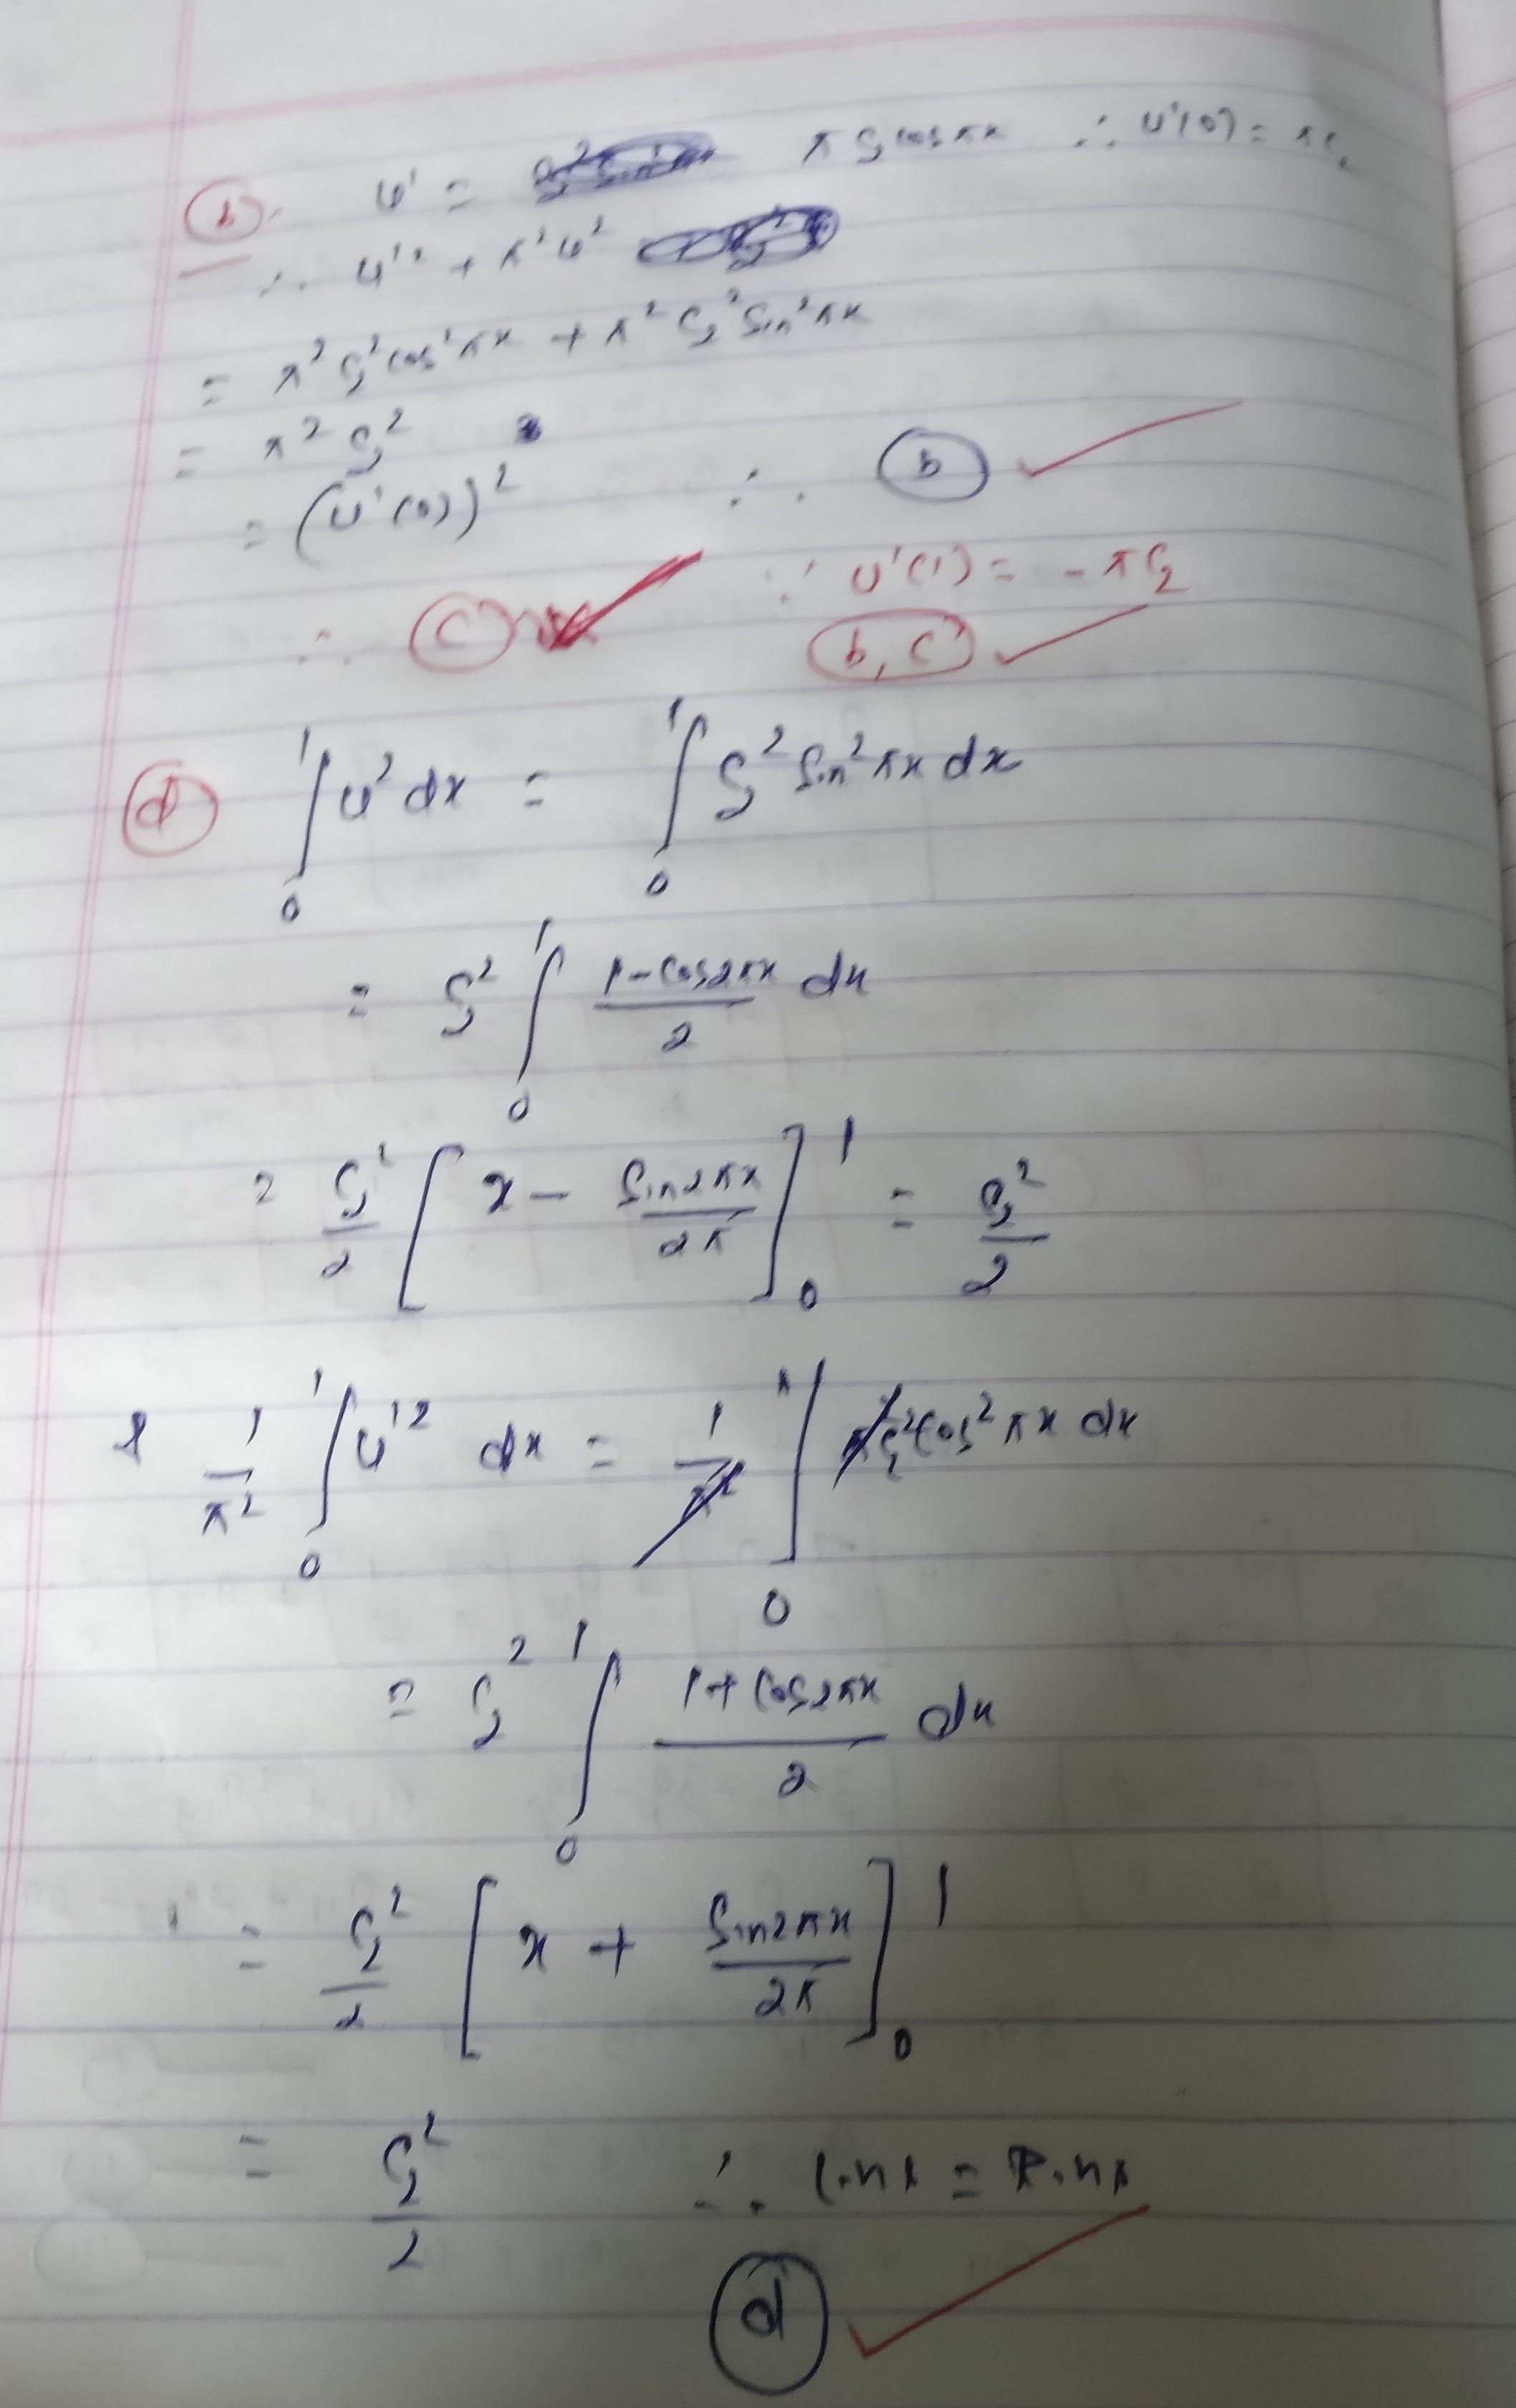 (b). u' = π c₂ cos πx ∴ u'(0) = π c₂
∴ u'² + π²u²
= π² c₂² cos² πx + π² c₂² sin² πx
= π² c₂²
= (u'(0))² ∴ (b) ✓
∴ (c) ✓ ∵ u'(1) = -π c₂
(b, c) ✓
(d) ∫₀¹ u² dx = ∫₀¹ c₂² sin² πx dx
= c₂² ∫₀¹ (1 - cos 2πx)/2 dx
= c₂²/2 [x - sin 2πx/2π]₀¹ = c₂²/2
& 1/π² ∫₀¹ u'² dx = 1/π² ∫₀¹ π² c₂² cos² πx dx
= c₂² ∫₀¹ (1 + cos 2πx)/2 dx
= c₂²/2 [x + sin 2πx/2π]₀¹
= c₂²/2 ∴ L.H.S = R.H.S
(d) ✓